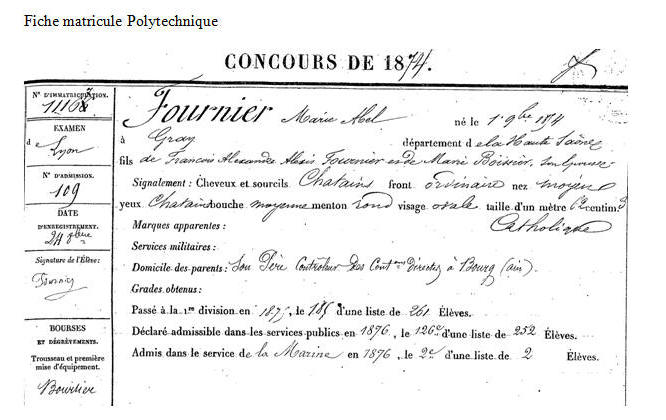 Fiche matricule Polytechnique
CONCOURS DE 1874.
N° D'IMMATRICULATION.
EXAMEN
de Lyon
N° D'ADMISSION.
109
DATE
D'ENREGISTREMENT.
24 8bre
Signature de l'Élève:
Fournier
BOURSES
ET DÉGRÈVEMENTS.
Trousseau et première
mise d'équipement.
Boursier
Fournier Marie Abel né le 1er 9bre 1854
à Gray département de la Haute Saône
fils de François Alexandre Alexis Fournier et de Marie Boissier, son épouse
Signalement : Cheveux et sourcils Chatains front ordinaire nez moyen
yeux Chatains bouche moyenne menton rond visage ovale taille d'un mètre centim.
Marques apparentes : Catholique
Services militaires :
Domicile des parents: Son Père Controleur des Contons directes à Bourg (ain).
Grades obtenus:
Passé à la 1re division en 1875, le 185e d'une liste de 261 Élèves.
Déclaré admissible dans les services publics en 1876, le 126e d'une liste de 252 Élèves.
Admis dans le service de la Marine en 1876, le 2e d'une liste de 2 Élèves.